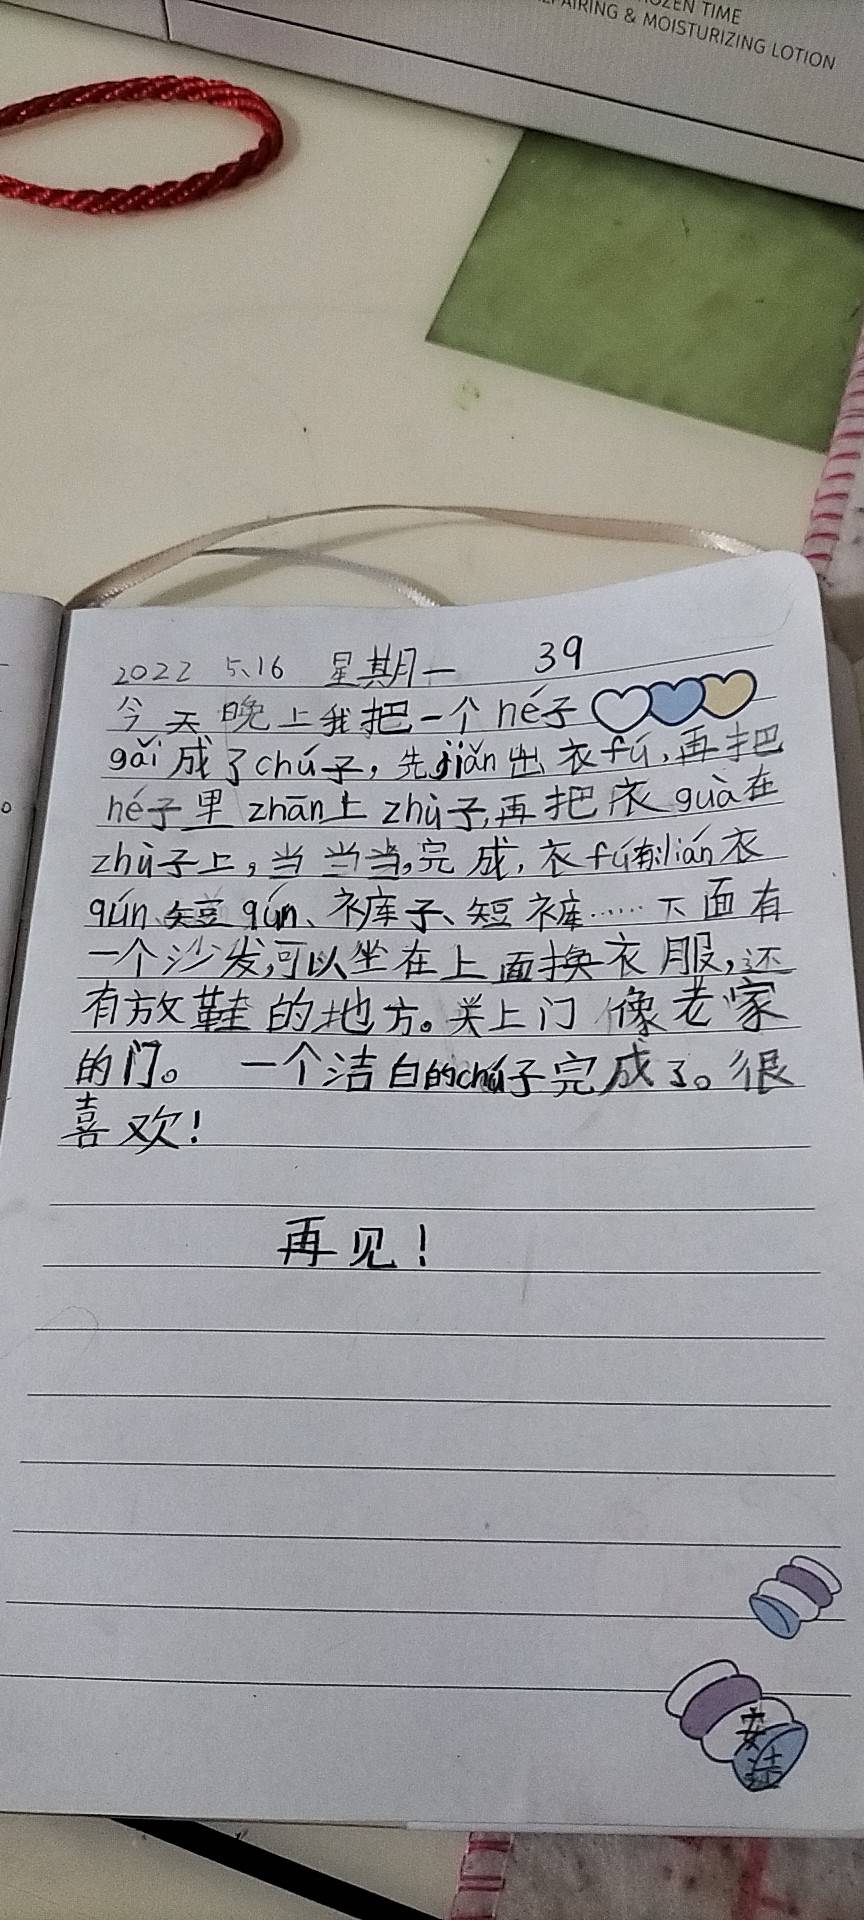 OZEN TIME
AIRING & MOISTURIZING LOTION
2022 5.16 星期一 39
今天晚上我把一个hé子
gǎi成了chú子，先jiǎn出衣fú，再把
hé子里zhān上zhù子，再把衣guà在
zhù子上，当当当，完成，衣fú有：lián衣
qún、短qún、裤子、短裤……下面有
一个沙发，可以坐在上面换衣服，还
有放鞋的地方。关上门像老家
的门。 一个洁白的chú子完成了。很
喜欢！
再见！